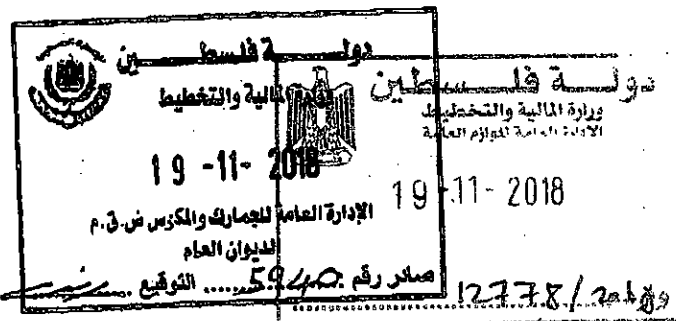 دولـــــة فلسطـــــــين
وزارة المالية والتخطيط
19 -11- 2018
الإدارة العامة للجمارك والمكوس ض.ق.م
الديوان العام
صادر رقم 5940 ..... التوقيع
دولـــــة فلـــــسطين
وزارة المالية والتخطيط
الإدارة العامة للوازم العامة
19 -11- 2018
12778/